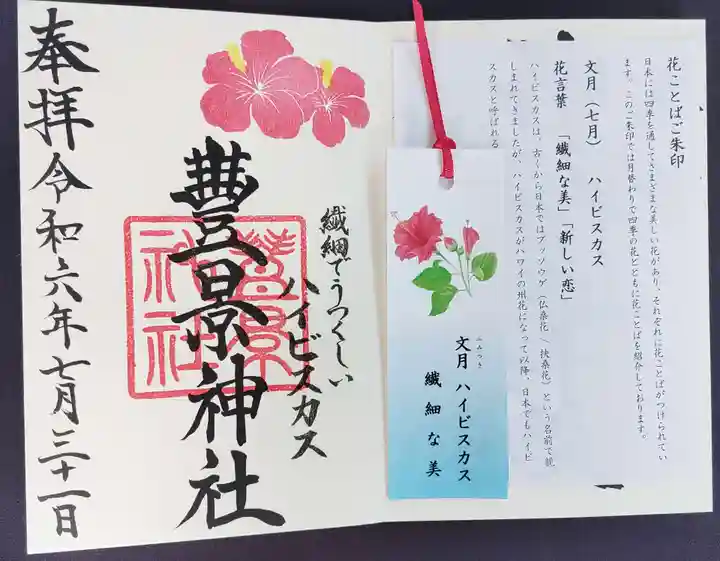 花ことばご朱印
日本には四季を通してさまざまな美しい花があり、それぞれに花ことばがつけられてい
ます。このご朱印では月替わりで四季の花とともに花ことばを紹介しております。
文月(七月) ハイビスカス
花言葉 「繊細な美」「新しい恋」
ハイビスカスは、古くから日本ではブッソウゲ(仏桑花\扶桑花)という名前で親
しまれてきましたが、ハイビスカスがハワイの州花になって以降、日本でもハイビ
スカスと呼ばれる
文月 ハイビスカス
ふみつき
繊細な美
繊細でうつくしい
ハイビスカス
豐景神社
豊景
神社
奉拝 令和六年七月三十一日